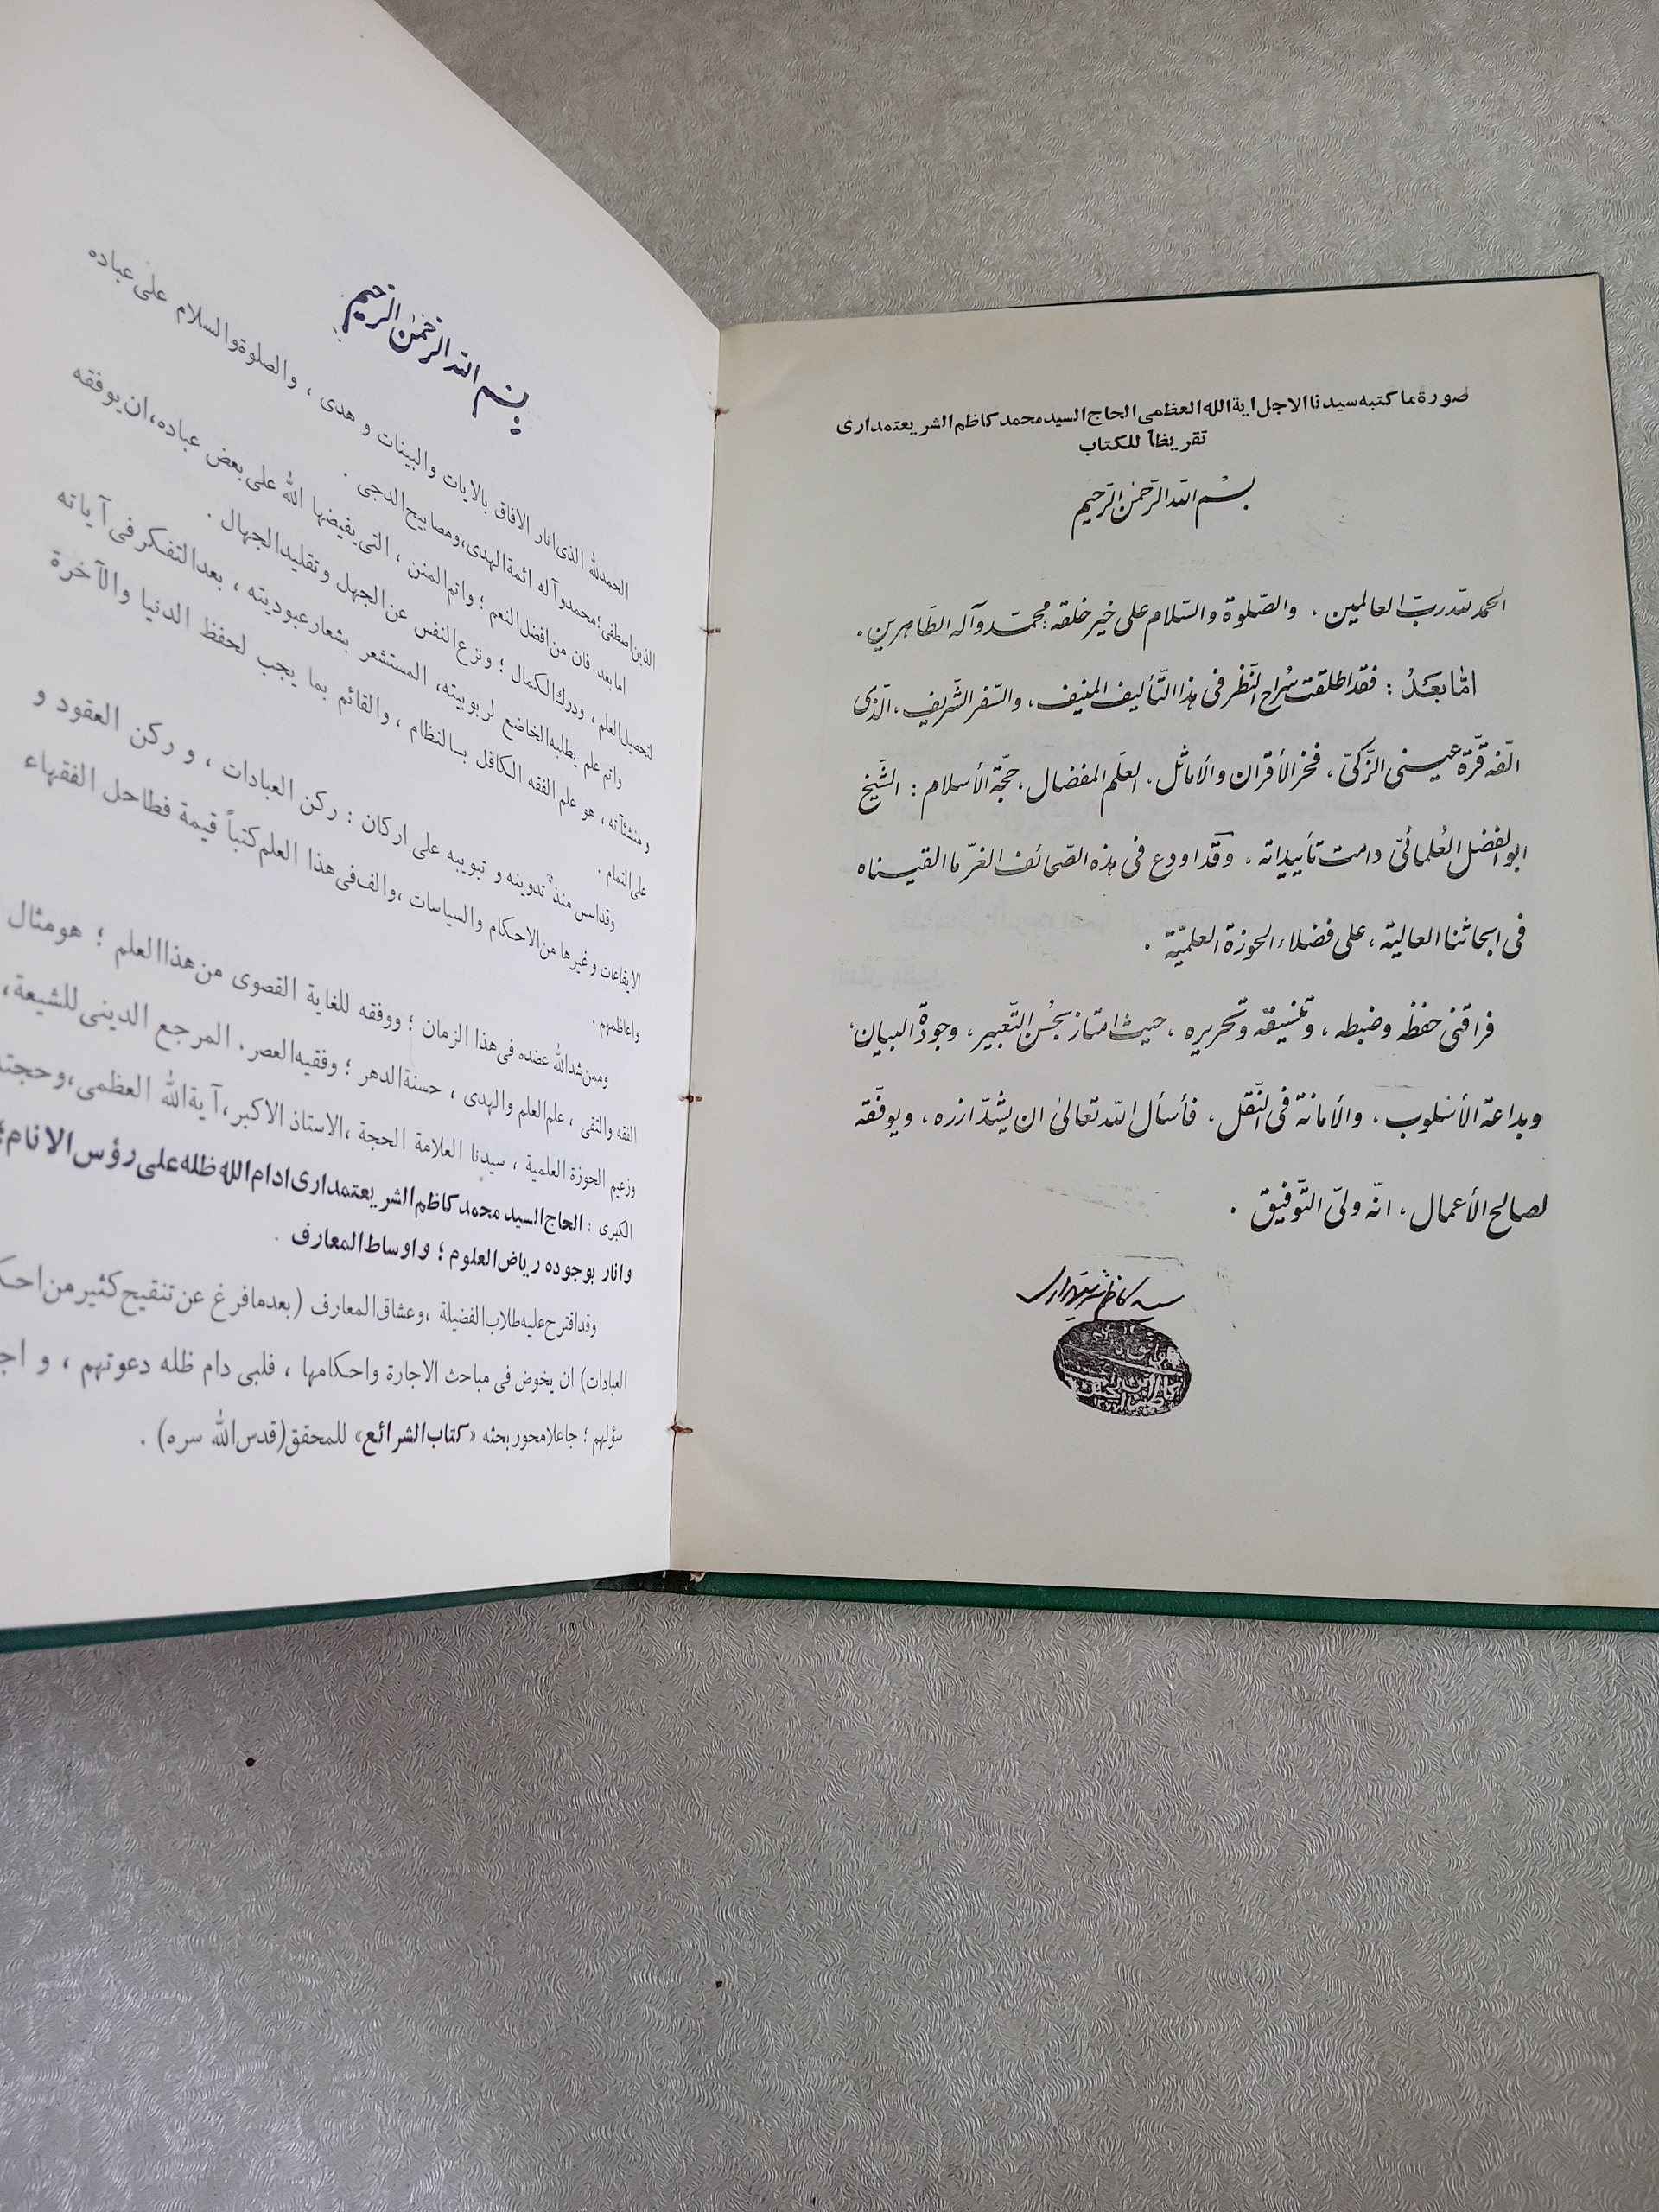 صورة ما كتبه سيدنا الاجل اية الله العظمى الحاج السيد محمد كاظم الشريعتمدارى
تقريظاً للكتاب
بسم الله الرحمن الرحيم
الحمد لله رب العالمين . والصّلوة والسّلام على خير خلقه : محمّد وآله الطّاهرين .
امّا بعدُ : فقد اطلقت سُراح النّظر فى هذا التّأليف المنيف ، والسّفر الشّريف ، الّذى
الّفه قرّة عينى الزّكىّ ، فخر الأقران والأماثل ، العلَم المفضال ، حجّة الأسلام : الشّيخ
ابو الفضل العُلمائىّ دامت تأييداته ، وقد اودع فى هذه الصّحائف الغرّ ما القيناه
فى ابحاثنا العالية ، على فضلاء الحوزة العلميّة .
فراقنى حفظه وضبطه ، وتنسيقه وتحريره ، حيث امتاز بحُسن التّعبير ، وجودة البيان ،
وبداعة الأسلوب ، والأمانة فى النّقل ، فأسأل الله تعالى ان يشدّ ازره ، ويوفّقه
لصالح الأعمال ، انّه ولىّ التّوفيق .
سيد كاظم شريعتمدارى
بسم الله الرحمن الرحيم
الحمدلله الذى انار الافاق بالايات والبينات و هدى ، والصلوة والسلام على عباده
الذين اصطفى؛ محمد وآله ائمة الهدى، ومصابيح الدجى .
اما بعد فان من افضل النعم ؛ واتم المنن ، التى يفيضها الله على بعض عباده، ان يوفقه
لتحصيل العلم ، ودرك الكمال ؛ ونزع النفس عن الجهل وتقليد الجهال .
واتم علم يطلبه الخاضع لربوبيته، المستشعر بشعار عبوديته ، بعد التفكر فى آياته
ومنشئآته ، هو علم الفقه الكافل بالنظام ، والقائم بما يجب لحفظ الدنيا والآخرة
على التمام .
وقد اسس منذ تدوينه و تبويبه على اركان : ركن العبادات ، و ركن العقود و
الايقاعات وغيرها من الاحكام والسياسات ،والف فى هذا العلم كتباً قيمة فطاحل الفقهاء
واعاظمهم .
وممن شدالله عضده فى هذا الزمان ؛ ووفقه للغاية القصوى من هذا العلم ؛ هو مثال
الفقه والتقى ، علم العلم والهدى ، حسنة الدهر ؛ وفقيه العصر. المرجع الدينى للشيعة،
وزعيم الحوزة العلمية ، سيدنا العلامة الحجة ،الاستاذ الاكبر، آية الله العظمى، وحجته
الكبرى : الحاج السيد محمد كاظم الشريعتمدارى ادام الله ظله على رؤس الانام؛
وانار بوجوده رياض العلوم ؛ واوساط المعارف .
وقد اقترح عليه طلاب الفضيلة ،وعشاق المعارف (بعد ما فرغ عن تنقيح كثير من
العبادات) ان يخوض فى مباحث الاجارة واحكامها ، فلبى دام ظله دعوتهم ، و
سؤلهم ؛ جاعلا محور بحثه «كتاب الشرائع» للمحقق(قدس الله سره) .